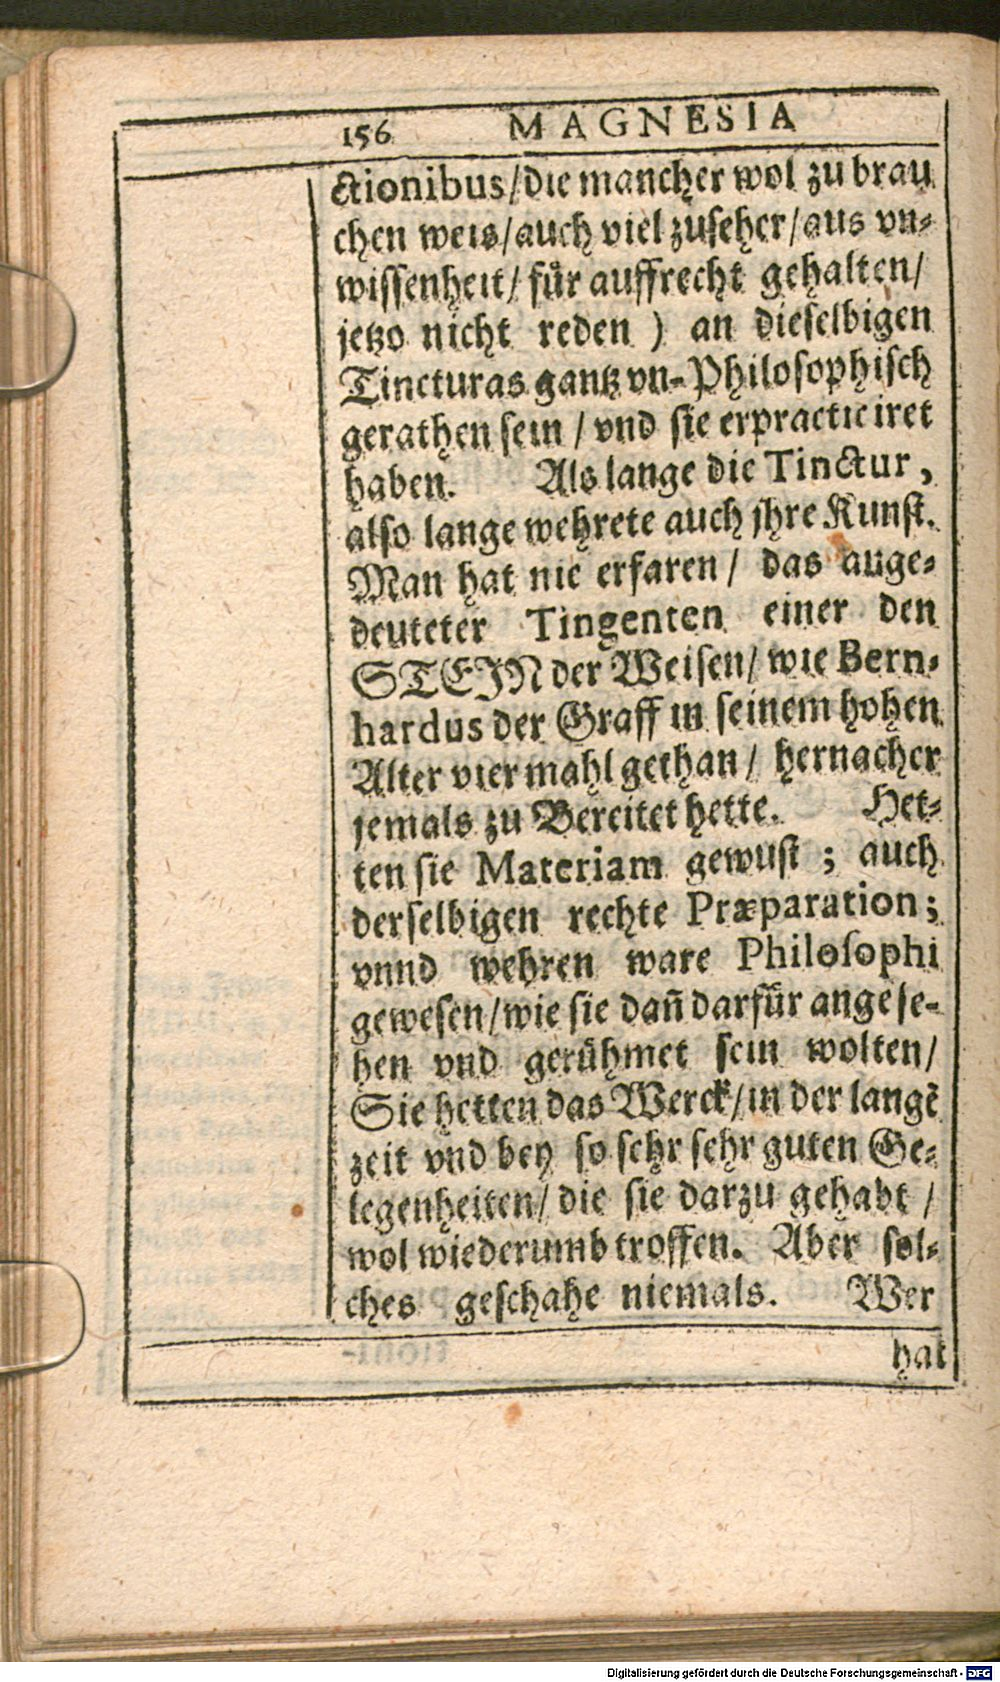 156 MAGNESIA
ctionibus/die mancher wol zu brau
chen weis/auch viel zuseher/aus vn-
wissenheit/ für auffrecht gehalten/
jetzo nicht reden ) an dieselbigen
Tincturas gantz vn-Philosophisch
gerathen sein / vnd sie erpracticiret
haben. Als lange die Tinctur,
also lange wehrete auch jhre Kunst.
Man hat nie erfaren/ das auge-
deuteter Tingenten einer den
STEIN der Weisen/ wie Bern-
hardus der Graff in seinem hohen
Alter vier mahl gethan/ hernacher
jemals zu Bereitet hette. Het-
ten sie Materiam gewust ; auch
derselbigen rechte Præparation;
vnnd wehren ware Philosophi
gewesen/wie sie dañ darfür angese-
hen vnd gerühmet sein wolten/
Sie hetten das Werck/in der langē
zeit vnd bey so sehr sehr guten Ge-
legenheiten/ die sie darzu gehabt /
wol wiederumb troffen. Aber sol-
ches geschahe niemals. Wer
hat
Digitalisierung gefördert durch die Deutsche Forschungsgemeinschaft - DFG